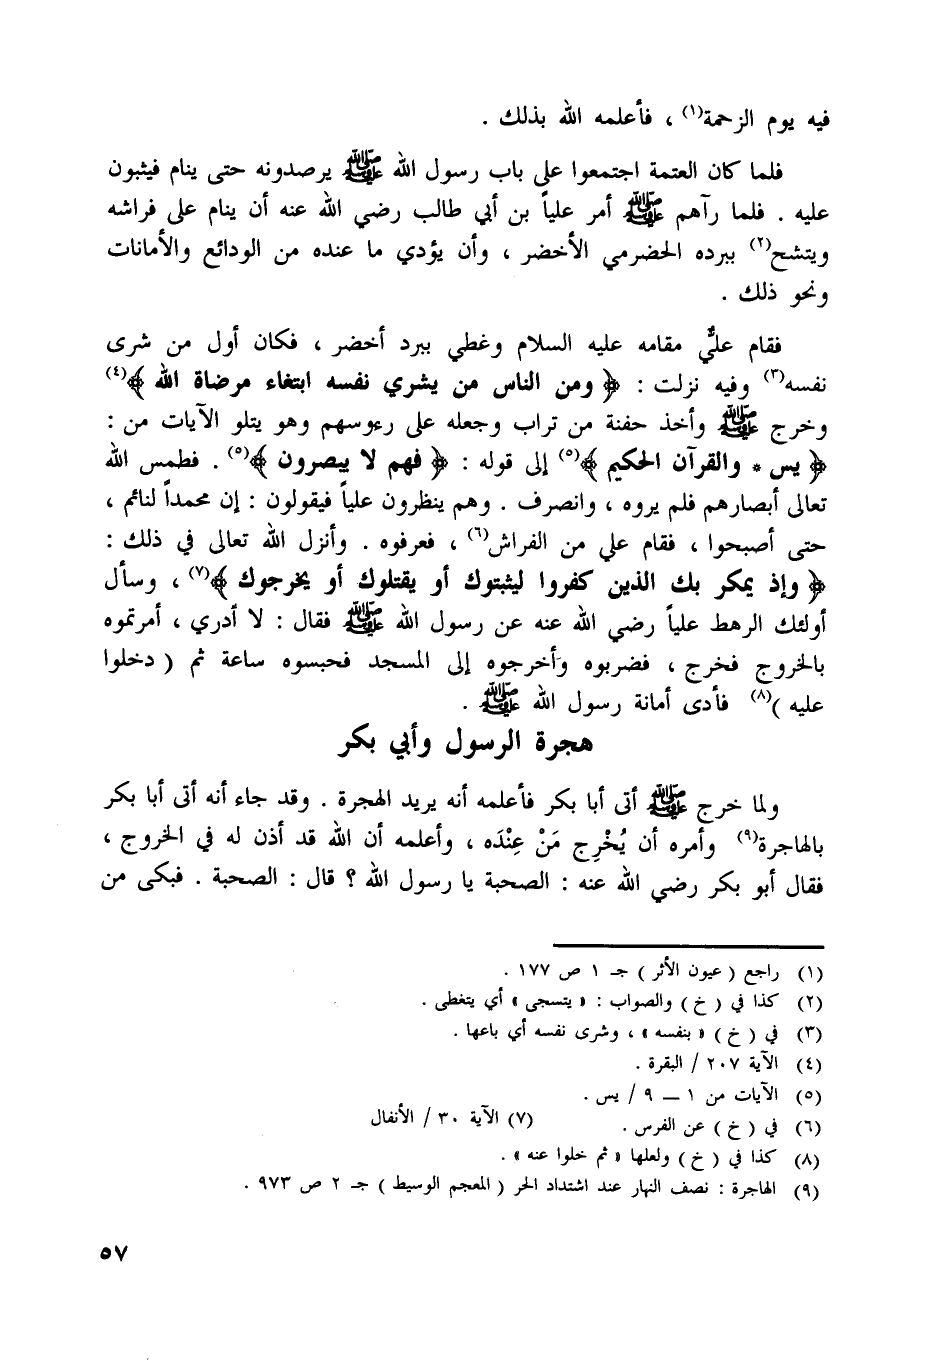 فيه يوم الزحمة(١) ، فأعلمه الله بذلك .
فلما كان العتمة اجتمعوا على باب رسول الله ﷺ يرصدونه حتى ينام فيثبون
عليه . فلما رآهم ﷺ أمر علياً بن أبي طالب رضي الله عنه أن ينام على فراشه
ويتشح(٢) ببرده الحضرمي الأخضر ، وأن يؤدي ما عنده من الودائع والأمانات
ونحو ذلك .
فقام عليٌّ مقامه عليه السلام وغطي ببرد أخضر ، فكان أول من شرى
نفسه(٣) وفيه نزلت : ﴿ ومن الناس من يشري نفسه ابتغاء مرضاة الله ﴾(٤)
وخرج ﷺ وأخذ حفنة من تراب وجعله على رءوسهم وهو يتلو الآيات من :
﴿ يس * والقرآن الحكيم ﴾(٥) إلى قوله : ﴿ فهم لا يبصرون ﴾(٥) . فطمس الله
تعالى أبصارهم فلم يروه ، وانصرف . وهم ينظرون علياً فيقولون : إن محمداً لنائم ،
حتى أصبحوا ، فقام علي من الفراش(٦) ، فعرفوه . وأنزل الله تعالى في ذلك :
﴿ وإذ يمكر بك الذين كفروا ليثبتوك أو يقتلوك أو يخرجوك ﴾(٧) ، وسأل
أولئك الرهط علياً رضي الله عنه عن رسول الله ﷺ فقال : لا أدري ، أمرتموه
بالخروج فخرج ، فضربوه وأخرجوه إلى المسجد فحبسوه ساعة ثم ( دخلوا
عليه )(٨) فأدى أمانة رسول الله ﷺ .
هجرة الرسول وأبي بكر
ولما خرج ﷺ أتى أبا بكر فأعلمه أنه يريد الهجرة . وقد جاء أنه أتى أبا بكر
بالهاجرة(٩) وأمره أن يُخْرِج مَنْ عِنْدَه ، وأعلمه أن الله قد أذن له في الخروج ،
فقال أبو بكر رضي الله عنه : الصحبة يا رسول الله ؟ قال : الصحبة . فبكى من
(١) راجع ( عيون الأثر ) جـ ١ ص ١٧٧ .
(٢) كذا في ( خ ) والصواب : « يتسجى » أي يتغطى .
(٣) في ( خ ) « بنفسه » ، وشرى نفسه أي باعها .
(٤) الآية ٢٠٧ / البقرة .
(٥) الآيات من ١ — ٩ / يس .
(٦) في ( خ ) عن الفرس . (٧) الآية ٣٠ / الأنفال
(٨) كذا في ( خ ) ولعلها « ثم خلوا عنه » .
(٩) الهاجرة : نصف النهار عند اشتداد الحر ( المعجم الوسيط ) جـ ٢ ص ٩٧٣ .
٥٧